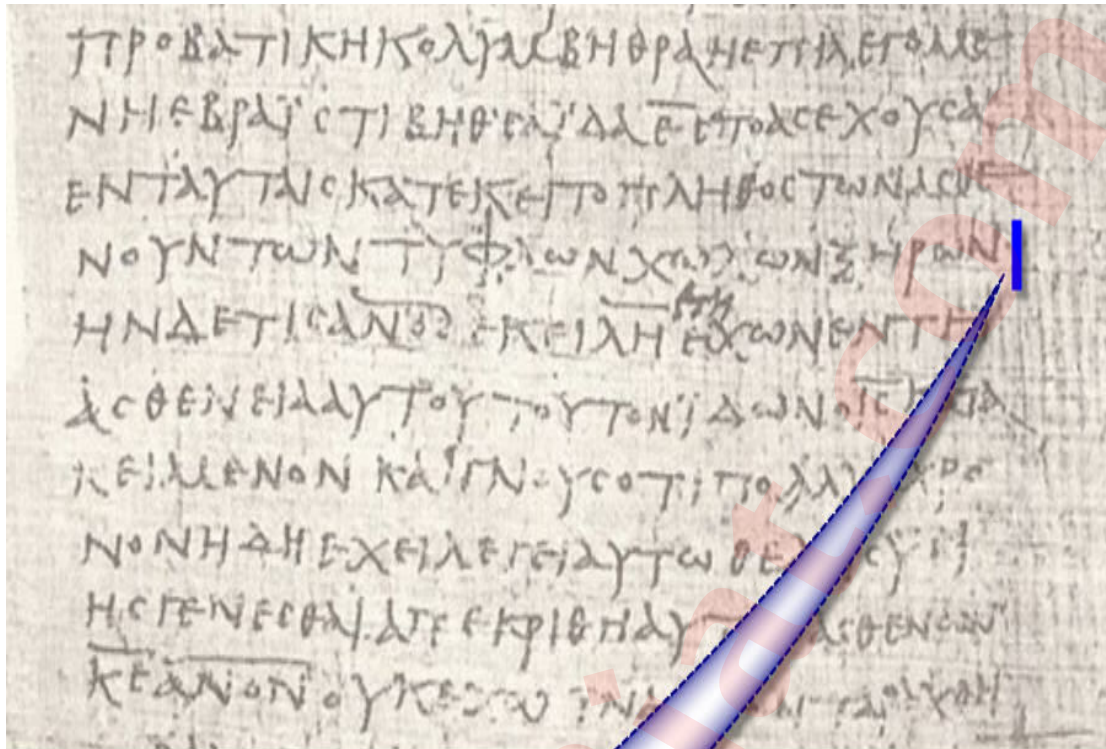 ΠΡΟΒΑΤΙΚΗΚΟΛΥΜΒΗΘΡΑΗΕΠΙΛΕΓΟΜΕ
ΝΗΕΒΡΑΙϹΤΙΒΗΘϹΑΙΔΑΕ̅ϹΤΟΑϹΕΧΟΥϹΑ
ΕΝΤΑΥΤΑΙϹΚΑΤΕΚΕΙΤΟΠΛΗΘΟϹΤΩΝΑϹΘΕ
ΝΟΥΝΤΩΝΤΥΦΛΩΝΧΩΛΩΝΞΗΡΩΝ
ΗΝΔΕΤΙϹΑΝΟϹΕΚΕΙΛΗΕΤΗΕΧΩΝΕΝΤΗ
ΑϹΘΕΝΕΙΑΑΥΤΟΥΤΟΥΤΟΝΙΔΩΝΟΙϹΚΑΤΑ
ΚΕΙΜΕΝΟΝΚΑΙΓΝΟΥϹΟΤΙΠΟΛΛ
ΝΟΝΗΔΗΕΧΕΙΛΕΓΕΙΑΥΤΩΘΕΛ
ΗϹΓΕΝΕϹΘΑΙΑΠΕΚΡΙΘΗΑΥΤ ΑϹΘΕΝΩΝ
ΚΕΑΝΟΝΟΥΚΕΧΩΙΝΑ